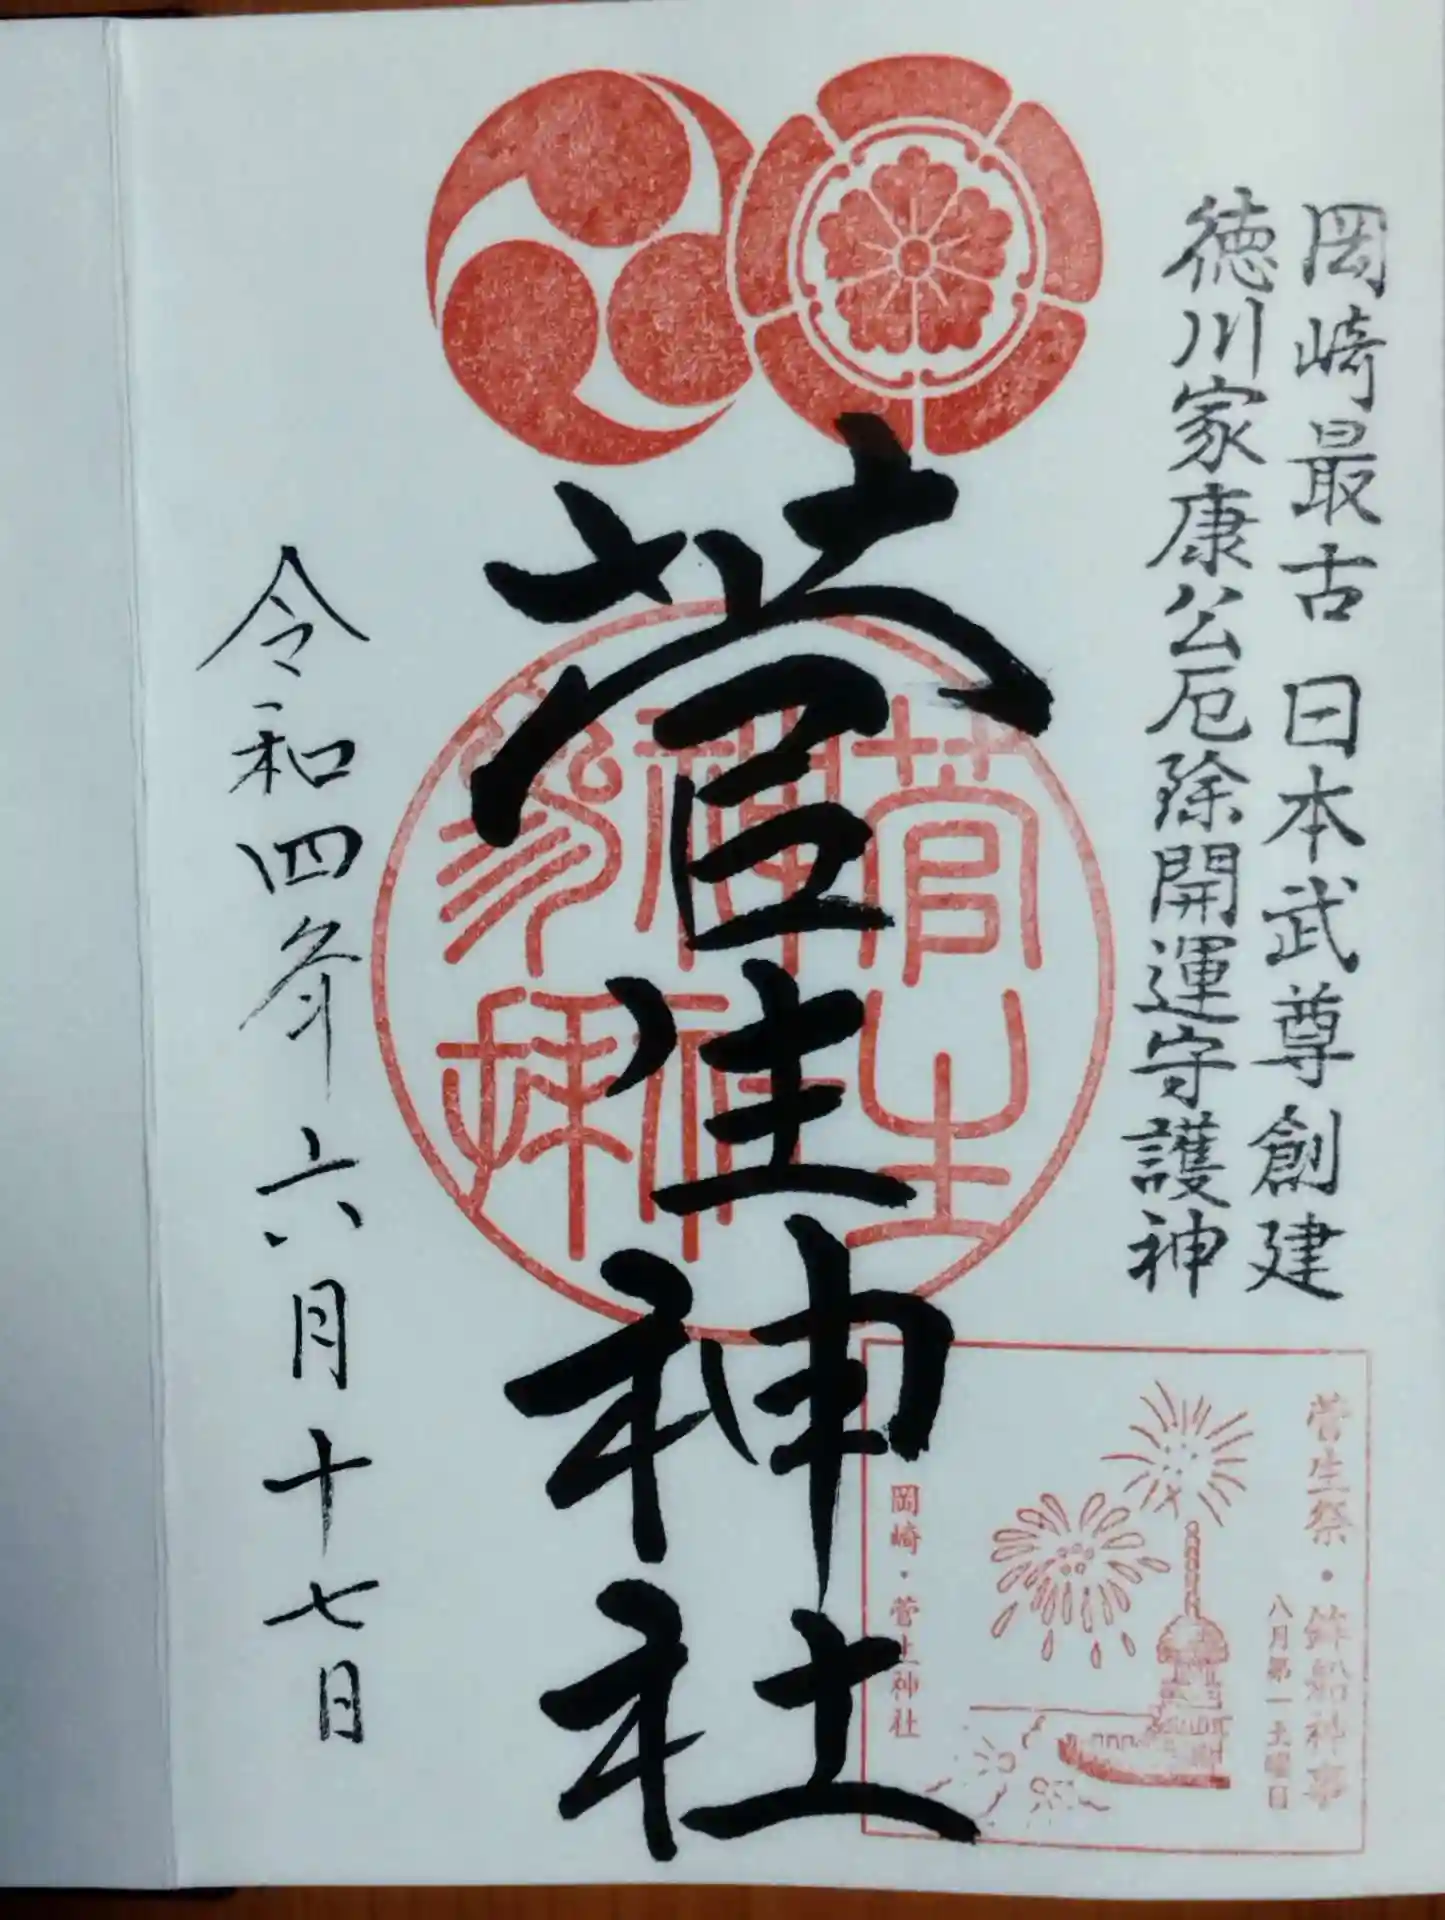 岡崎最古 日本武尊創建
徳川家康公厄除開運守護神
菅生神社
菅生
神社
参拝
令和四年六月十七日
菅生祭・鉾船神事
八月第一土曜日
岡崎・菅生神社